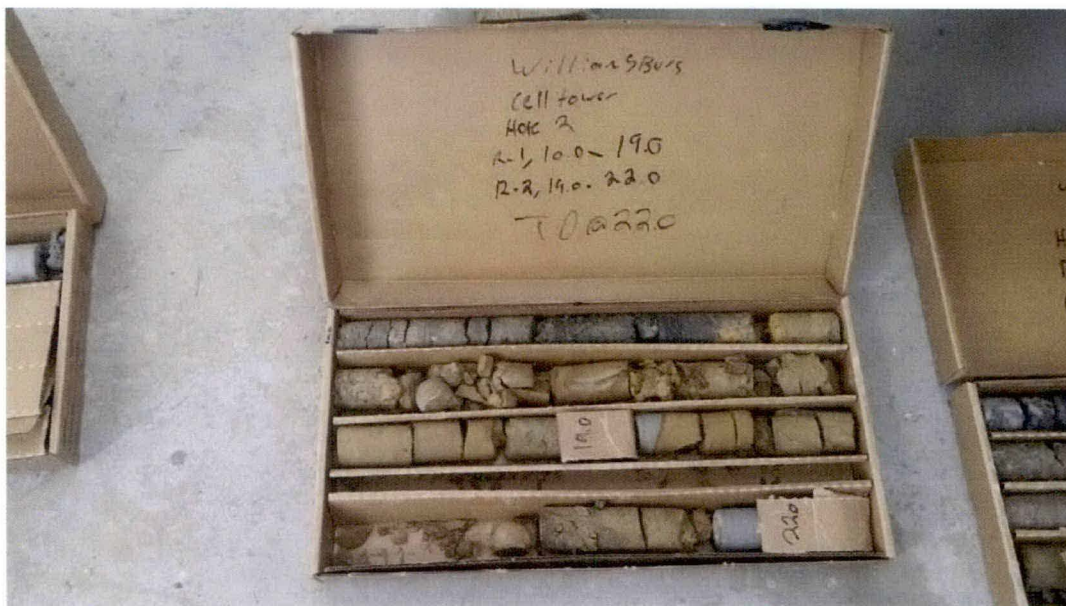 WillianSBurg
Cell tower
Hole 2
R-1, 10.0 - 19.0
R-2, 19.0 - 22.0
TD @ 22.0
19.0
22.0